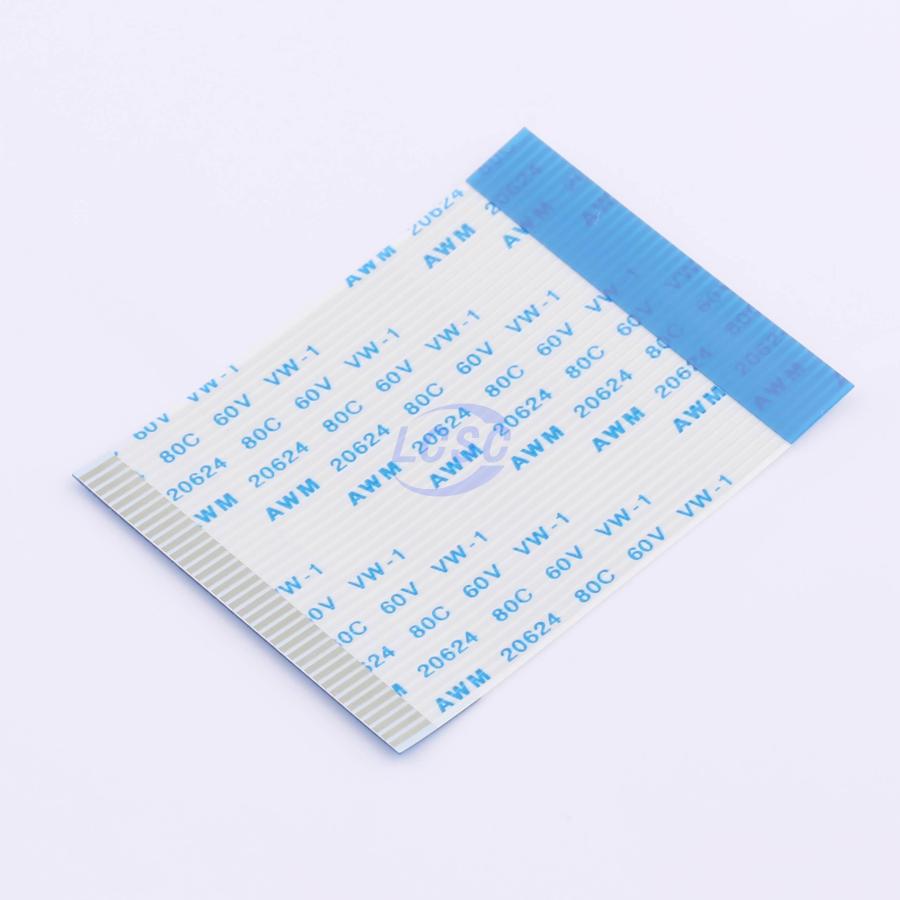 AWM 20624
AWM 20624
AWM 20624
60V VW-1
80C 60V VW-1
20624 80C 60V VW-1
AWM 20624 80C 60V VW-1
AWM 20624 80C 60V VW-1
AWM 20624 80C 60V VW-1
AWM 20624 80C
AWM 20624
AWM 20624 80C
LCSC
VW-1
60V VW-1
80C 60V VW-1
20624 80C 60V VW-1
AWM 20624 80C 60V VW-1